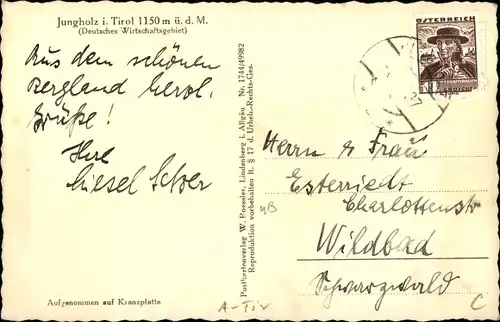 Jungholz i. Tirol 1150 m ü. d. M.
(Deutsches Wirtschaftsgebiet)
Aus dem schönen
Bergland herzl.
Grüße!
Ihre
Liesel
Aufgenommen auf Kranzplatte
A-Tir
Postkartenverlag W. Roessler, Lindenberg i. Allgäu Nr. 1744/49982
Reproduktion vorbehalten lt. § 17 d. Urheb.-Rechts-Ges.
ÖSTERREICH
GROSCHEN
Herrn & Frau
Esterriedt
Charlottenstr
Wildbad
Schwarzwald
C